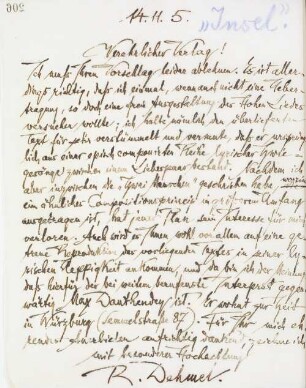 902
14.11.5.
"Insel".
Verehrlicher Verlag!
Ich muß Ihren Vorschlag leider ablehnen. Es ist aller-
dings richtig, daß ich einmal, wenn auch nicht eine Ueber-
tragung, so doch eine freie Ausgestaltung des Hohen Liedes
versuchen wollte; ich halte nämlich den überlieferten
Text für sehr verstümmelt und vermute, daß er ursprüng-
lich aus einer episch componierten Reihe lyrischer
gesänge zwischen einem Liebespaar besteht. Nachdem ich
aber inzwischen die "Zwei Menschen" geschrieben habe, worin
ein ähnliches Compositionsprincip in größerem Umfang
ausgetragen ist, hat jener Plan das Interesse für mich
verloren. Auch wird es Ihnen wohl vor allem auf eine ge-
treue Reproduktion des vorliegenden Textes in seiner
Ueppigkeit ankommen, und da bin ich der Meinung,
daß hierfür der bei weitem berufenste Interpret gegen-
wärtig Max Dauthendey ist. Er wohnt zur Zeit
in Würzburg (Semmelstraße 87). Für Ihr mich eh-
rendes Anerbieten aufrichtig dankend, zeichne ich
mit besonderer Hochachtung
R. Dehmel.